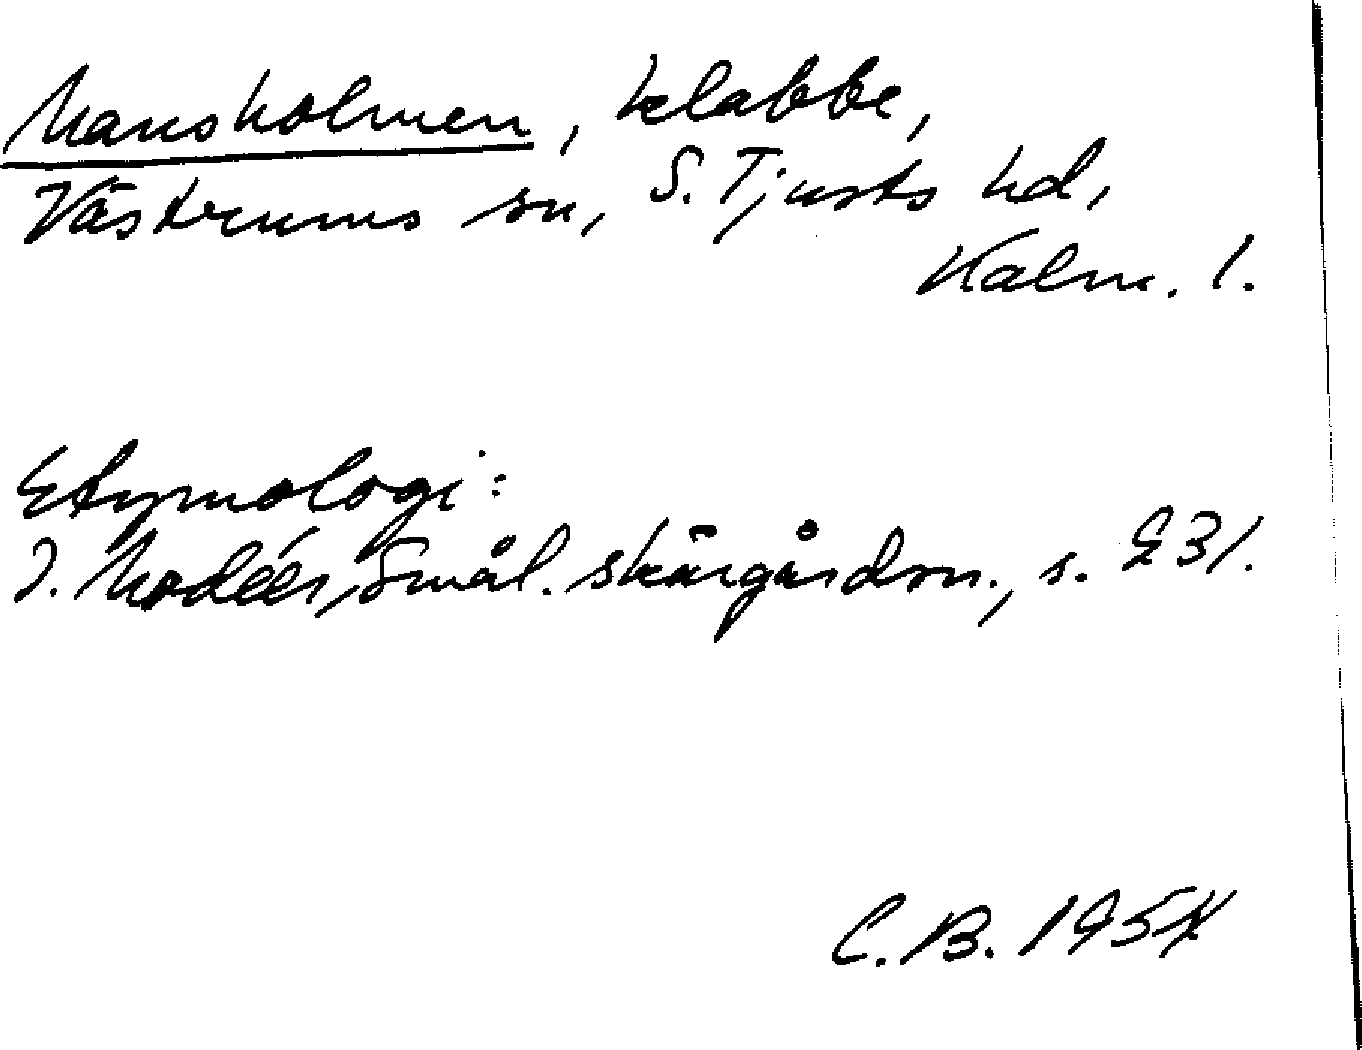 Mansholmen, klabbe,
Västrums sn, S. Tjusts hd,
Kalm. l.
Etymologi:
I. Modéer, Smål. skärgårdsn., s. 231.
C.B. 1954